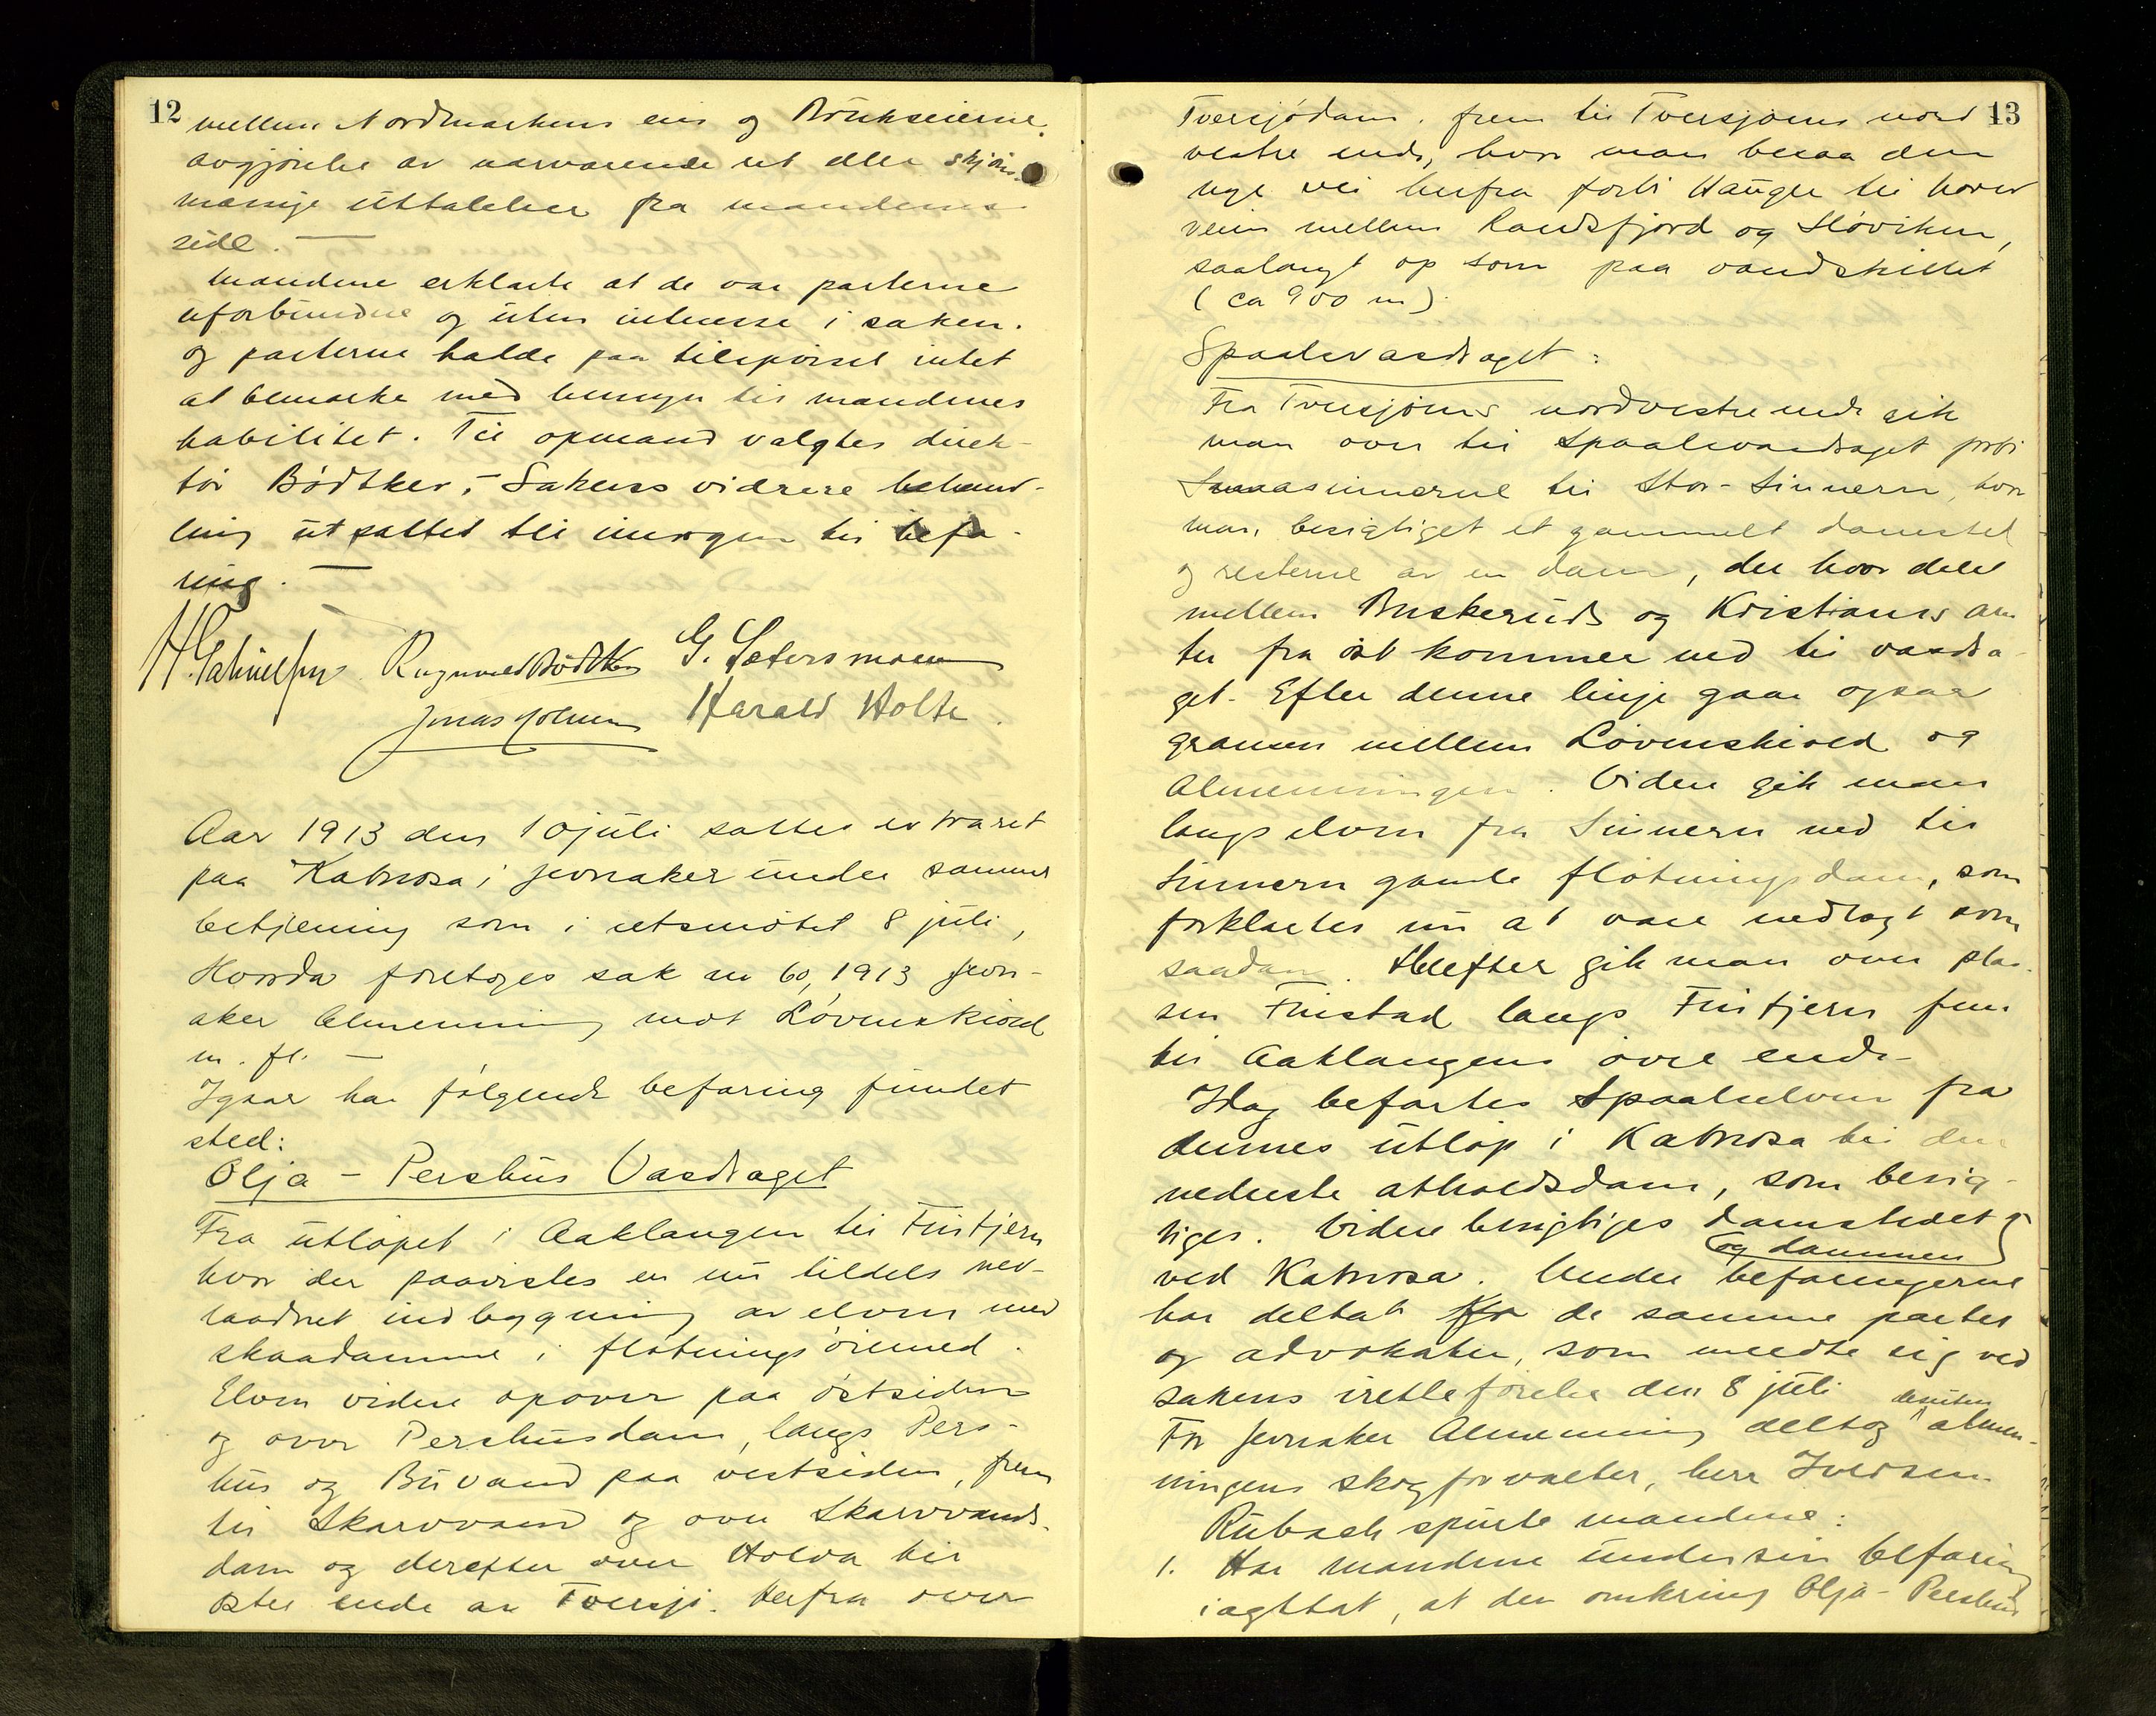 12
mellem Nordmarkens eier og Brukseierne.
avgjørelse av nærværende ret eller skjøns-
mæssige uttalelser fra mændenes
side. —
Mændene erklærte at de var parterne
uforbundne og uten interesse i saken.
og parterne hadde paa tilspørsel intet
at bemærke med hensyn til mændenes
habilitet. Til opmand valgtes direk-
tør Bødtker. – Sakens videre behand-
ling utsattes til imorgen til befa-
ring. —
Ragnvald Bødtker G. Sætersmoen
Harald Holte.
Aar 1913 den 10 juli sattes extraret
paa Katnosa i Jevnaker under samme
betjening som i retsmøtet 8 juli,
Hvorda foretoges sak nr 60, 1913 Jevn-
aker Almenning mot Løvenskiold
m. fl. —
Igaar har følgende befaring fundet
sted:
Ølja – Pershus Vasdraget
Fra utløpet i Aaklangen til Fristjern
hvor der paavistes en nu tildels ned-
raadnet indbygning av elven med
skaadamme i fløtningsøiemed.
Elven videre opover paa østsiden
og over Pershusdam, langs Pers-
hus og Buvand paa vestsiden, frem
til Skarvvand og over Skarvvands-
dam og derefter over Holoa til
østre ende av Tversjø. Herfra over
13
Tversjødam. frem til Tversjøens nord
vestre ende, hvor man besaa den
nye vei herfra forbi Hauger til hoved
veien mellem Randsfjord og Sløviken,
saalangt op som paa vandskillet
(ca 900 m).
Spaalevasdraget:
Fra Tversjøens nordvestre ende gik
man over til Spaalevasdraget forbi
Smaasinnerne til Stor-Sinnern, hvor
man besigtiget et gammelt damsted
og resterne av en dam, der hvor delet
mellem Buskeruds og Kristians am
ter fra øst kommer ned til vasdra-
get. Efter denne linje gaar ogsaa
grænsen mellem Løvenskiold og
Almenningen. Videre gik man
langs elven fra Sinnern ned til
Sinnern gamle fløtningsdam, som
forklartes nu at være nedlagt som
saadan. Herefter gik man over plas-
sen Fristad langs Fristjern frem
til Aaklangens øvre ende –
Idag befartes Spaaleelven fra
dennes utløp i Katnosa til den
nederste atholdsdam, som besig-
tiges. Videre besigtiges damstedet
og dammen
ved Katnosa. Under befaringerne
har deltat de samme parter
og advokater, som meldte sig ved
sakens iretteførelse den 8 juli
desuten
For Jevnaker Almenning deltog almen-
ningens skogforvalter, herr Iversen.
Rubach spurte mændene:
1. Har mændene under sin befaring
iagttat, at der omkring Ølja-Pershus